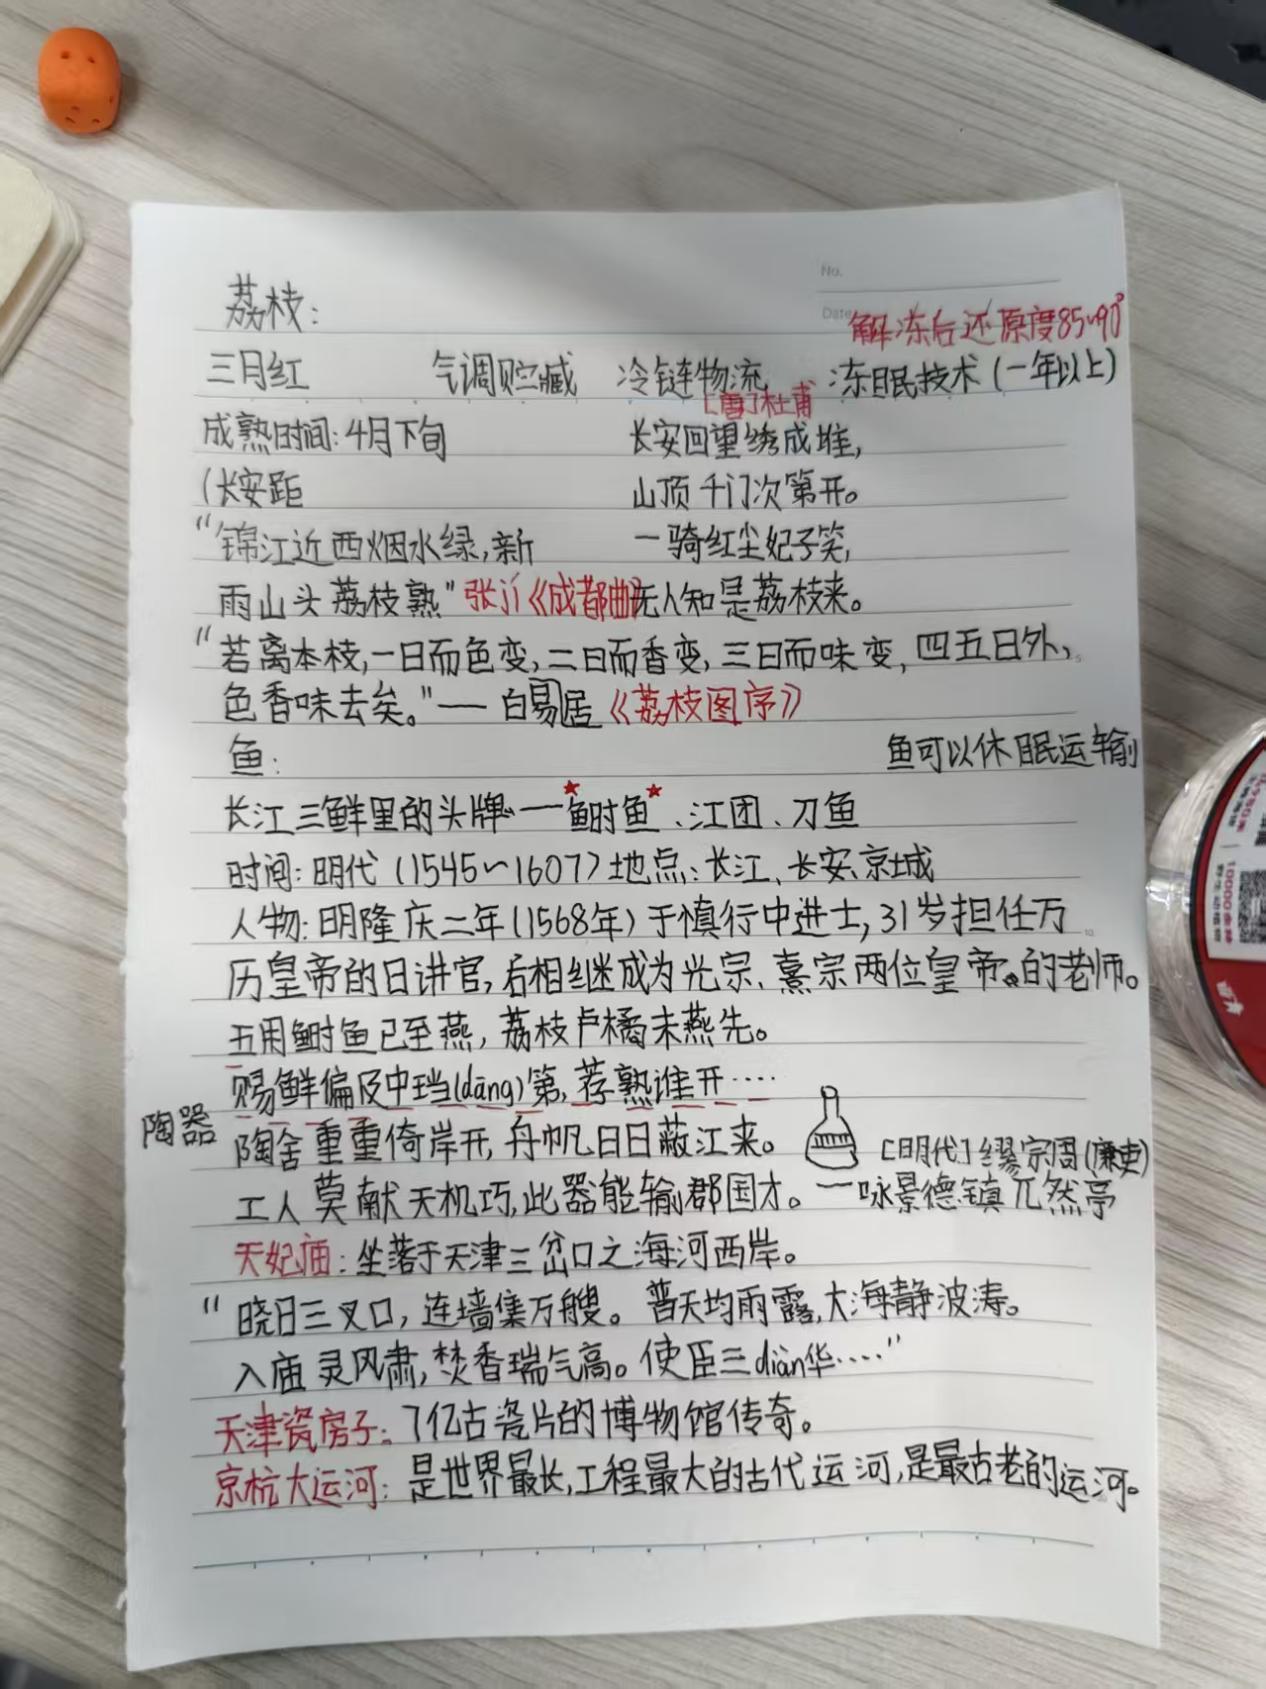 No.
Date
荔枝：
解冻后还原度85~90°
三月红 气调贮藏 冷链物流 冻眠技术（一年以上）
[唐]杜甫
成熟时间：4月下旬 长安回望绣成堆，
（长安距 山顶千门次第开。
“锦江近西烟水绿，新 一骑红尘妃子笑，
雨山头荔枝熟” 张《成都曲》 无人知是荔枝来。
“若离本枝，一日而色变，二日而香变，三日而味变，四五日外，
色香味去矣。”—— 白易居《荔枝图序》
鱼： 鱼可以休眠运输
长江三鲜里的头牌——鲥鱼、江团、刀鱼
时间：明代（1545~1607）地点：长江、长安、京城
人物：明隆庆二年（1568年）于慎行中进士，31岁担任万
历皇帝的日讲官，后相继成为光宗、熹宗两位皇帝的老师。
五用鲥鱼已至燕，荔枝卢橘未燕先。
赐鲜偏及中珰(dāng)第，荐熟谁开……
陶器
陶舍重重倚岸开，舟帆日日蔽江来。 [明代]缪宗周（廉吏）
工人莫献天机巧，此器能输郡国才。——咏景德镇兀然亭
天妃庙：坐落于天津三岔口之海河西岸。
“晓日三叉口，连墙集万艘。普天均雨露，大海静波涛。
入庙灵风肃，焚香瑞气高。使臣三diàn华……”
天津瓷房子：7亿古瓷片的博物馆传奇。
京杭大运河：是世界最长，工程最大的古代运河，是最古老的运河。